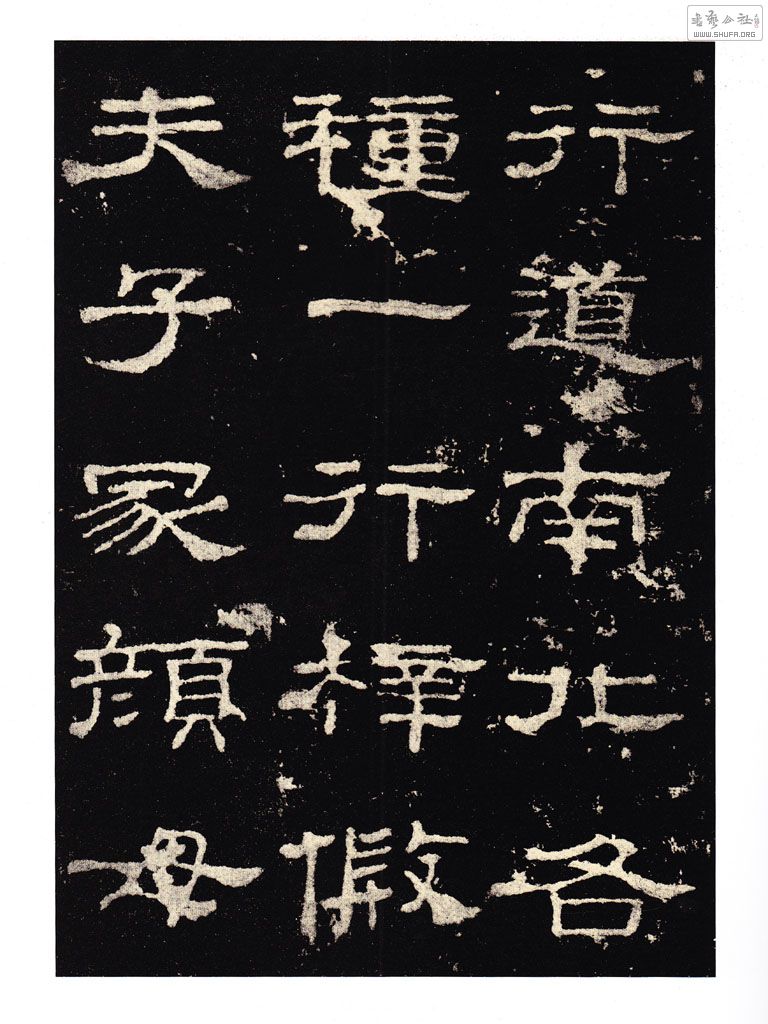 行道南北各
種一行梓假
夫子冢顏母
書藝公社
WWW.SHUFA.ORG